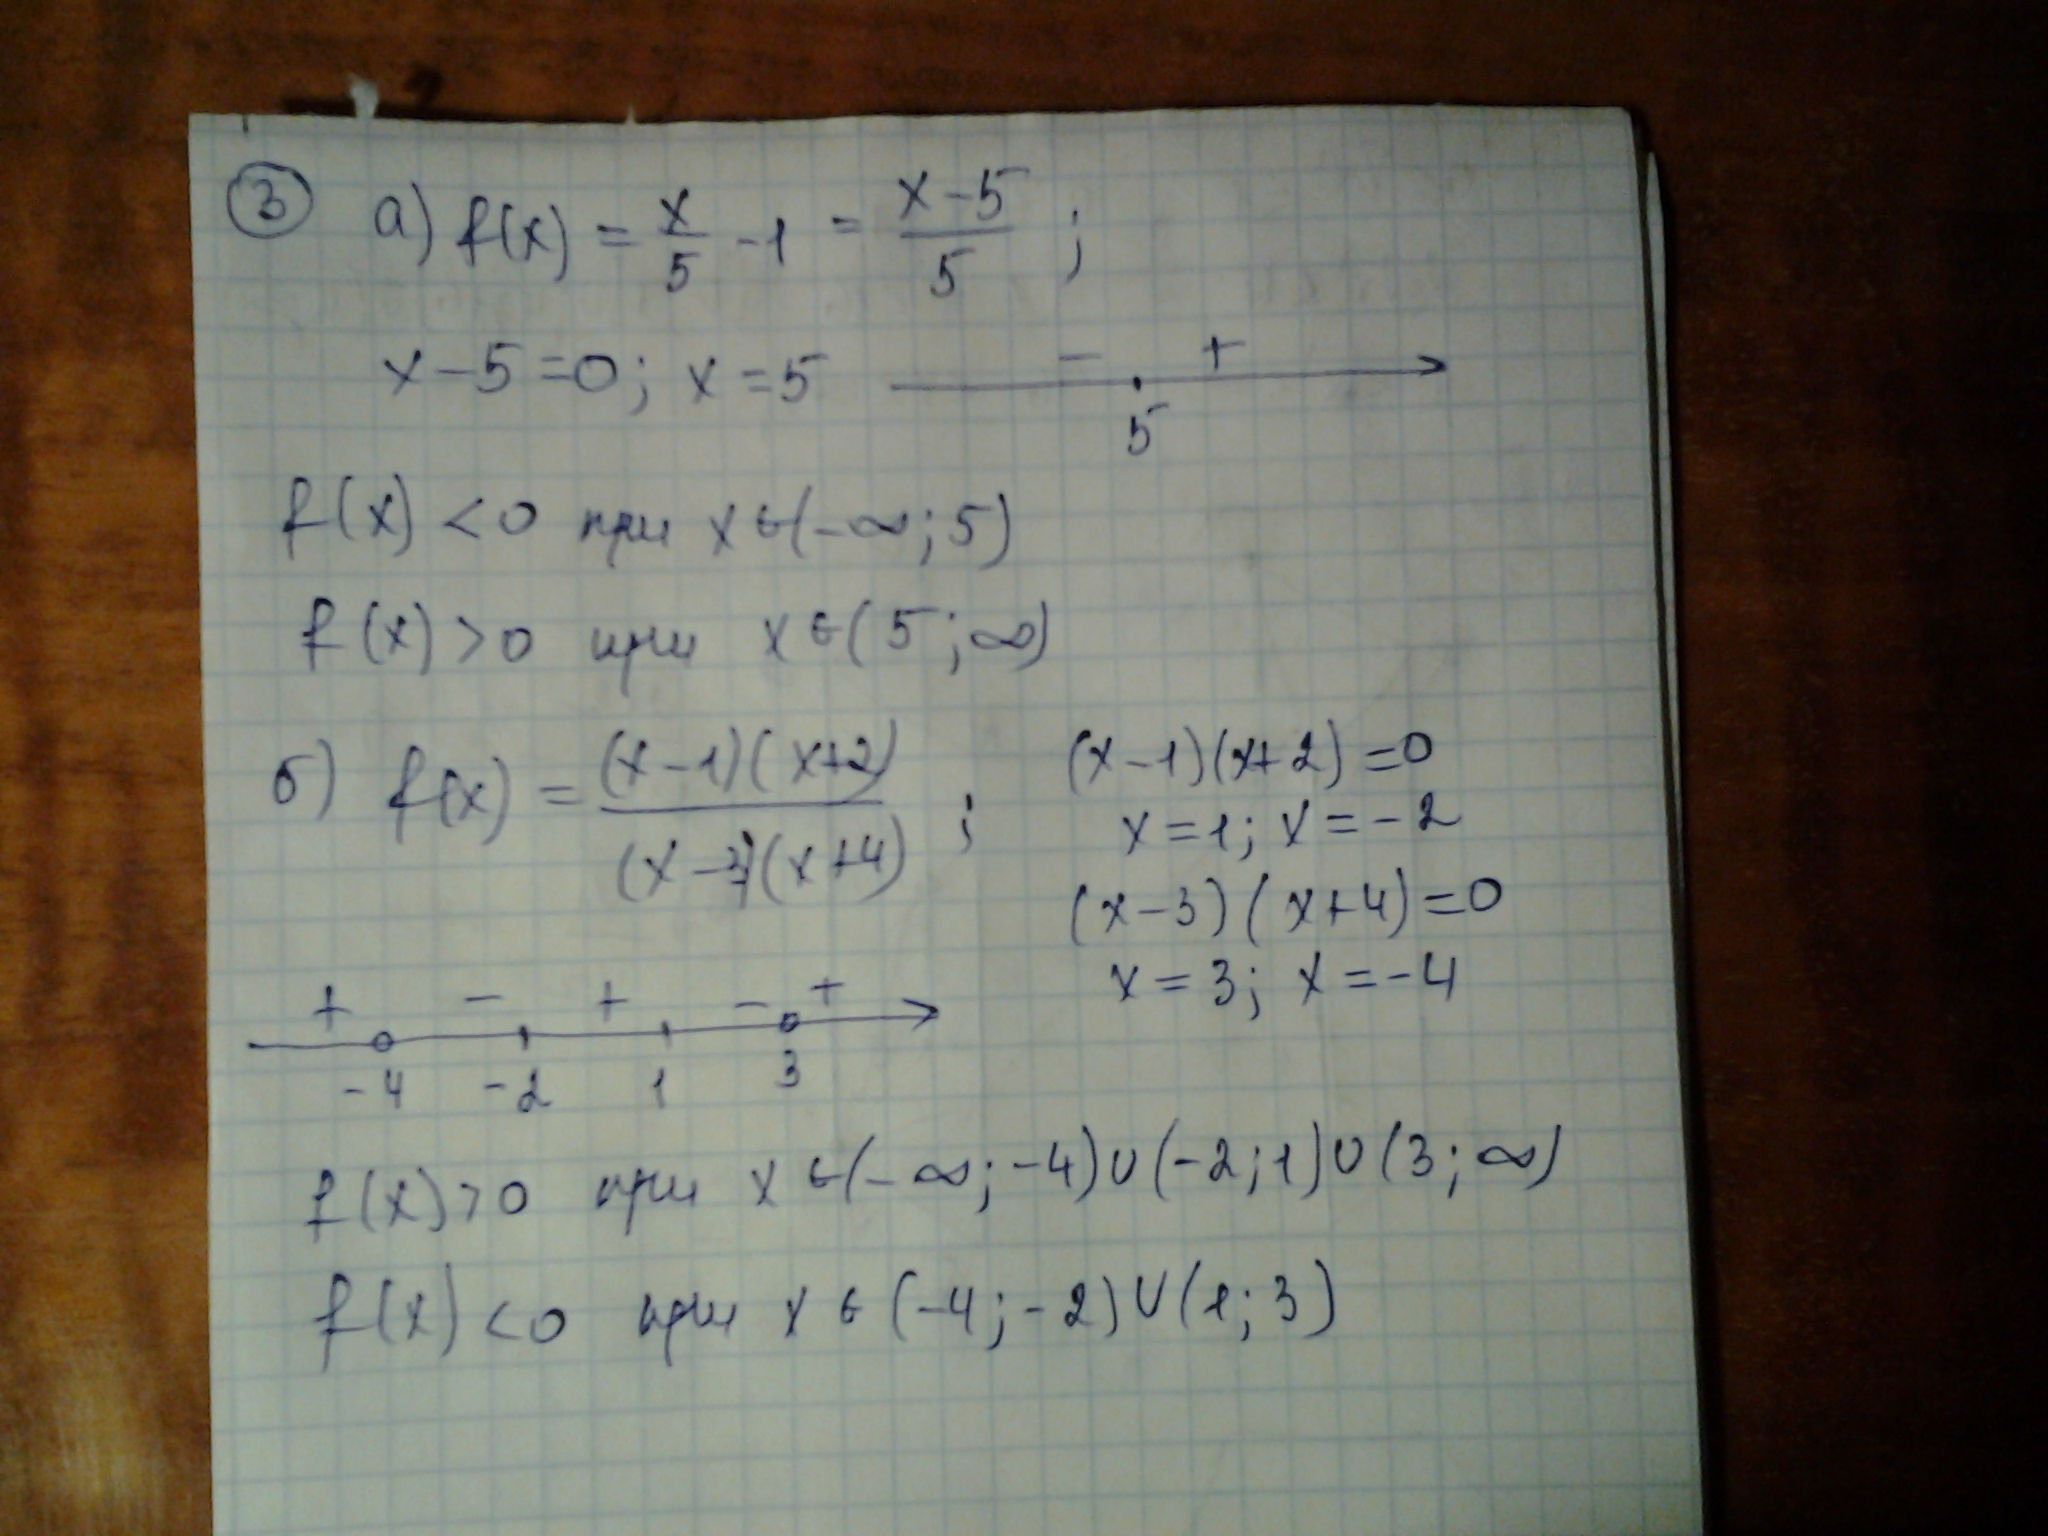 ③ а) f(x) = x/5 - 1 = (x-5)/5 ;
x-5=0; x=5
- +
5
f(x) <0 при x∈(-∞; 5)
f(x) >0 при x∈(5; ∞)
б) f(x) = (x-1)(x+2)/(x-3)(x+4) ;
(x-1)(x+2)=0
x=1; x=-2
(x-3)(x+4)=0
x=3; x=-4
+ - + - +
-4 -2 1 3
f(x)>0 при x∈(-∞; -4)∪(-2; 1)∪(3; ∞)
f(x)<0 при x∈(-4; -2)∪(1; 3)